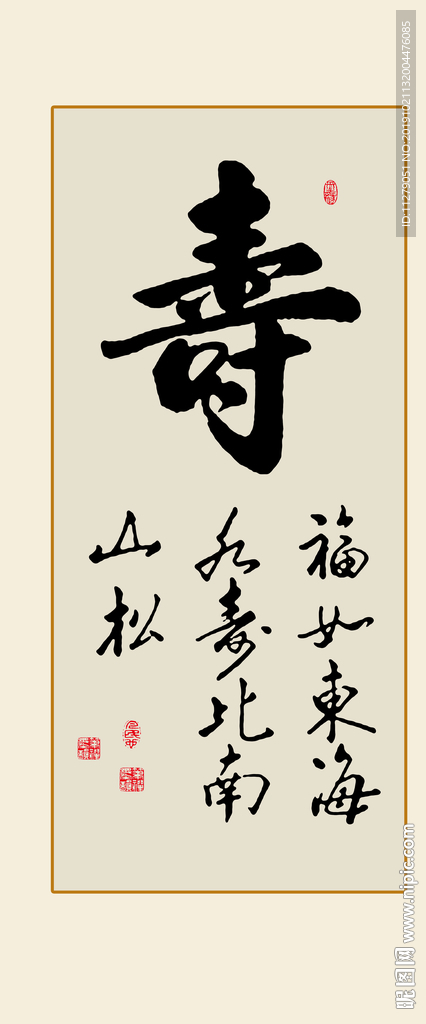 寿
福如東海
水寿比南
山松
ID:11279051 NO:20191021132004476085
昵图网 www.nipic.com